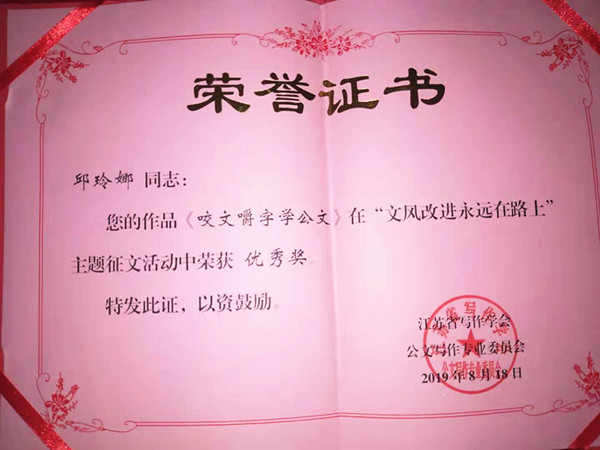 荣誉证书
邱玲娜 同志：
您的作品《咬文嚼字学公文》在“文风改进永远在路上”
主题征文活动中荣获 优秀奖。
特发此证，以资鼓励。
江苏省写作学会
公文写作专业委员会
2019年8月18日
江苏省写作学会
公文写作专业委员会